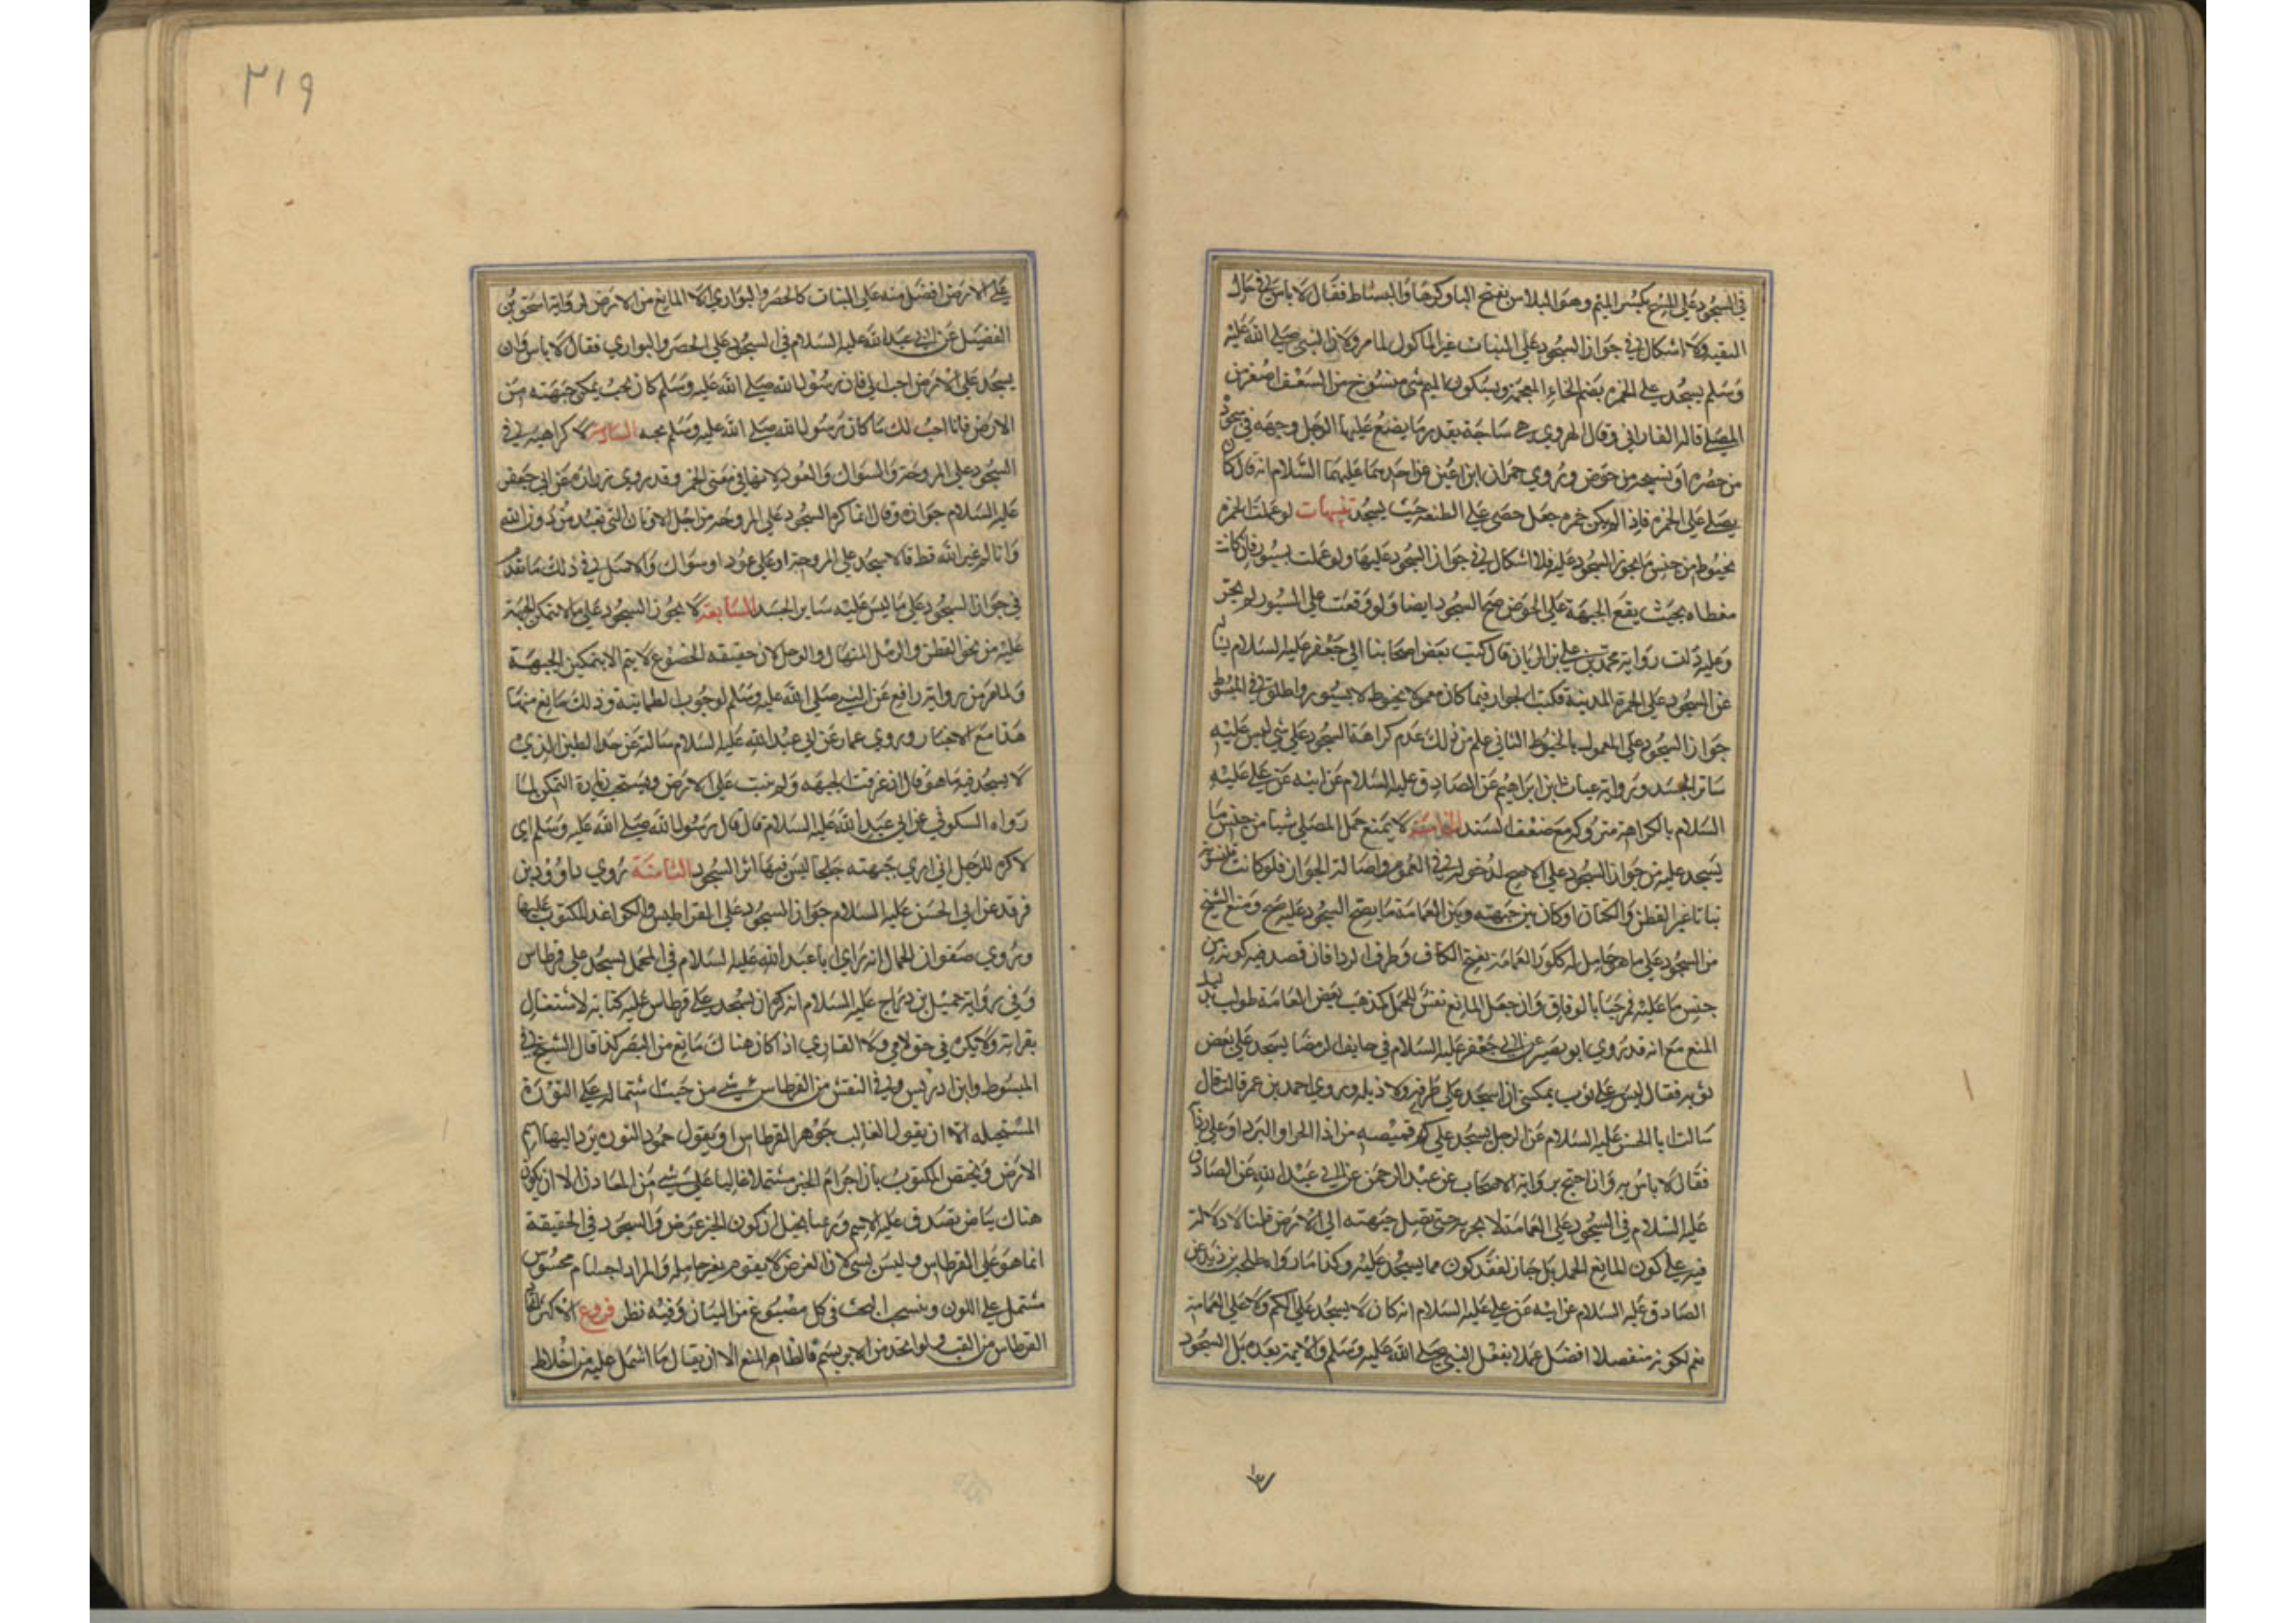 في السجود على المسح بكسر الميم وهو البلاس بفتح الباو كرها والبساط فقال لا باس في حال
التقية ولا اشكال في جواز السجود على النبات غير الماكول لما مر ولان النبي صلى الله عليه
وسلم يسجد على الخمره بضم الخاء المعجمة وسكون الميم شي منسوج من السعف اصغر من
المصلى قاله الفارابي وقال الهروي هي سجادة بقدر ما يضع عليها الرجل وجهه في سجود
من حصره او نسيجه من خوص وروي حمران ابن اعين عن احدهما عليهما السلام انه قال كان
يصلي على الخمره فاذا لم يكن خمره جعل حصى على الطنفسه حيث يسجد تنبيهات لو عملت الخمره
بخيوط من جنس ما يجوز السجود عليه فلا اشكال في جواز السجود عليها ولو عملت بسيور فان كانت
مغطاه بحيث يقع الجبهة على الخوص صح السجود ايضا ولو وقعت على السيور لم يجز
وعليه دلت رواية محمد بن علي بن الريان قال كتب بعض اصحابنا الى ابي جعفر عليه السلام
عن السجود على الخمرة المدينية فكتب الجواز فيما كان معمولا بخيوط لا بسيور واطلق في المبسوط
جواز السجود على المعموله بالخيوط الثاني علم من ذلك عدم كراهة السجود على شي ليس عليه
ساتر الجسد ورواية غياث ابن ابراهيم عن الصادق عليه السلام عن ابيه عن علي عليه
السلام بالكراهة متروكه مع ضعف السند الخامسة لا يمنع حمل المصلي شيا من جنس ما
يسجد عليه من جواز السجود على الاصح لدخوله في العموم واصالة الجواز فلو كانت
نباتا غير القطن والكتان او كان بين جبهته وبين العمامة ما يصح السجود عليه صح ومنع الشيخ
من السجود على ما هو حامل له ككور العمامة بفتح الكاف وطرف الردا فان قصد فيه كونه من
جنس ما عليه فمرحبا بالوفاق وان جعل المانع نفس الحمل كمذهب بعض العامة طولب بدليل
المنع مع انه قد روي ابو بصير عن ابي جعفر عليه السلام في خايف الرمضا يسجد على بعض
ثوبه فقال ليس علي ثوب يمكنني ان اسجد على طرفه ولا ذيله وروي احمد بن عمر قال
سالت ابا الحسن عليه السلام عن الرجل يسجد على كم قميصه من اذا الحر او البرد او على ردا
فقال لا باس به وان احتج برواية الاصحاب عن عبد الرحمن عن ابي عبد الله عن الصادق
عليه السلام في السجود على العمامة لا يجزيه حتى تصل جبهته الى الارض قلنا لا دلالة
فيه على كون المانع الحمل بل جاز لفقد كون مما يسجد عليه وكذا ما رواه طلحه بن زيد عن
الصادق عليه السلام عن ابيه عن علي عليه السلام انه كان لا يسجد على الكم ولا على العمامة
نعم لكونه منفصلا افضل عملا بفعل النبي صلى الله عليه وسلم والائمة بعده بل السجود
٢١٩
على الارض افضل منه على النبات كالحصر والبواري الا المانع من الارض لرواية اسحق بن
الفضيل عن ابي عبد الله عليه السلام في السجود على الحصر والبواري فقال لا باس وان
يسجد على الارض احب الي فان رسول الله صلى الله عليه وسلم كان يحب يمكن جبهته من
الارض فانا احب لك ما كان رسول الله صلى الله عليه وسلم يحبه السادسة لا كراهية في
السجود على المروحة والسواك والعود لانها في معنى الخمر وقد روي زراره عن ابي جعفر
عليه السلام جوازه وقال انما كره السجود على المروحة من اجل الاوثان التي تعبد من دون الله
وانا لم نعبر الله قط قال اسجد على المروحة او على عود او سواك والاصل في ذلك ما تقدم
في جواز السجود على ما ليس عليه ساير الجسد السابعة لا يجوز السجود على ما لا تتمكن الجبهة
عليه من نحو القطن والرمل المنهال والوحل لان حقيقه الخضوع لا يتم الا بتمكين الجبهة
ولما مر من رواية رافع عن النبي صلى الله عليه وسلم لوجوب الطمانينة وذلك مانع منها
هذا مع الاختيار وروي عمار عن ابي عبد الله عليه السلام سالته عن حد الطين الذي
لا يسجد فيه ما هو قال ان غرقت الجبهه ولم تثبت على الارض ويستحب زيادة التمكن لما
رواه السكوني عن ابي عبد الله عليه السلام قال قال رسول الله صلى الله عليه وسلم اي
لاكره للرجل اني اري جبهته جلحا ليس فيها اثر السجود الثامنة روي داوود بن
فرقد عن ابي الحسن عليه السلام جواز السجود على القراطيس والكواغد المكتوب عليها
وروي صفوان الجمال انه راي ابا عبد الله عليه السلام في المحمل يسجد على قرطاس
وفي رواية جميل بن دراج عليه السلام انه كره ان يسجد على قرطاس عليه كتابة لاشتغاله
بقراءته ولا يكره في حق الامي ولا القاري اذا كان هناك مانع من البصر كذا قال الشيخ في
المبسوط وابن ادريس وفي النفس من القرطاس شي من حيث اشتماله على النورة
المستحيله الا ان يقول الغالب جوهر القرطاس او يقول جمود النوره يرد اليها اسم
الارض ويختص المكتوب بان اجرام الحبر مشتملا غالبا على شي من المعادن الا ان يكون
هناك بياض يصدق عليه الاسم وربما يخيل ان كون الحبر عرض والسجود في الحقيقة
انما هو على القرطاس وليس بشي لان العرض لا يقوم بغير حامله والمراد اجسام محسوس
مشتمل على اللون وينسحب البحث في كل مصبوغ من النبات وفيه نظر فروع الاكثر
القرطاس من القنب ولو اتخذ من الابريسم فالظاهر المنع الا ان يقال ما اشتمل عليه من اخلاط